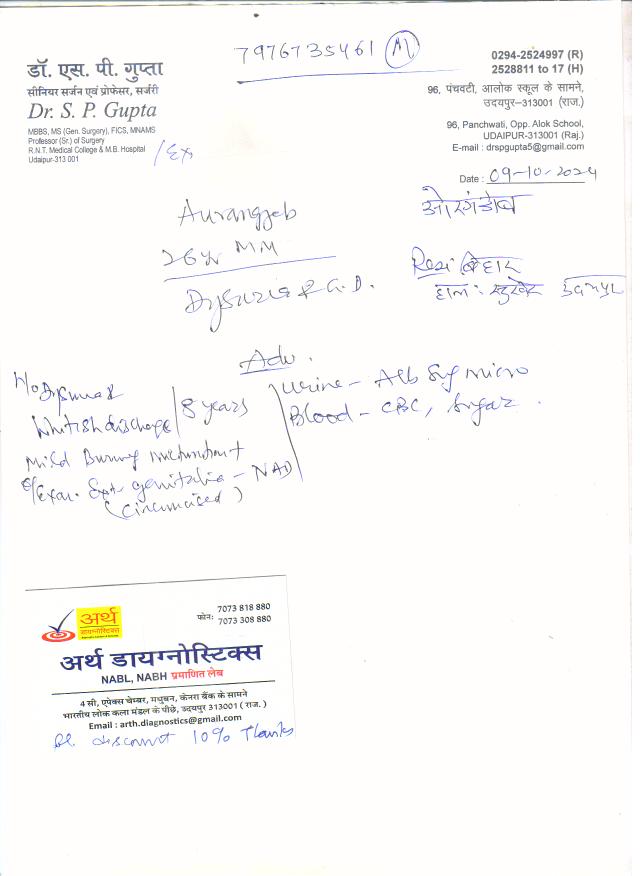 7976735461 M
डॉ. एस. पी. गुप्ता
सीनियर सर्जन एवं प्रोफेसर, सर्जरी
Dr. S. P. Gupta
MBBS, MS (Gen. Surgery), FICS, MNAMS
Professor (Sr.) of Surgery
R.N.T. Medical College & M.B. Hospital
Udaipur-313 001
/Ex
0294-2524997 (R)
2528811 to 17 (H)
96, पंचवटी, आलोक स्कूल के सामने,
उदयपुर–313001 (राज.)
96, Panchwati, Opp. Alok School,
UDAIPUR-313001 (Raj.)
E-mail : drspgupta5@gmail.com
Date : 09-10-2024
Aurangjeb
26 yr
Dysuria & G.D.
Resi: बिहार
हाल: उदयपुर
Adv.
H/o Dysuria &
Whitish discharge / 8 years
Mild Burning micturition +
O/Exam. Ext. genitalia - NAD
(Circumcised)
Urine - Alb Sug micro
Blood - CBC, Sugar.
अर्थ
डायग्नोस्टिक्स
फोन: 7073 818 880
7073 308 880
अर्थ डायग्नोस्टिक्स
NABL, NABH प्रमाणित लेब
4 सी, एपेक्स चेम्बर, मधुबन, केनरा बैंक के सामने
भारतीय लोक कला मंडल के पीछे, उदयपुर 313001 ( राज. )
Email : arth.diagnostics@gmail.com
Pl. discount 10% Thanks